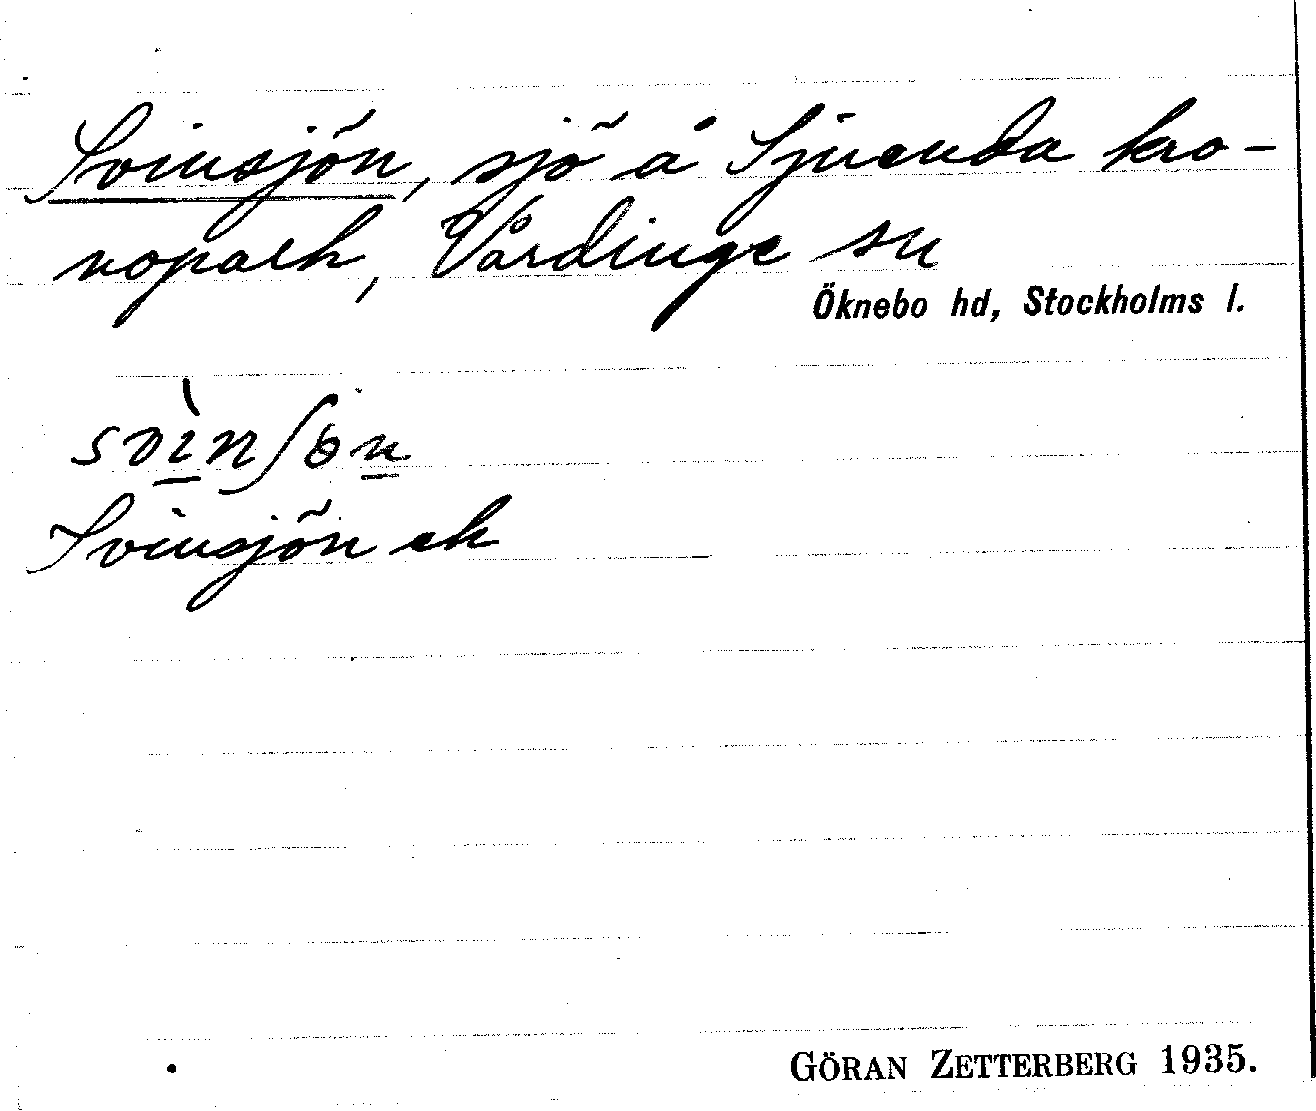 Svinsjön, sjö å Sjuenda kro-
nopark, Vårdinge sn
Öknebo hd, Stockholms l.
svìnʃön
Svinsjön ek
GÖRAN ZETTERBERG 1935.